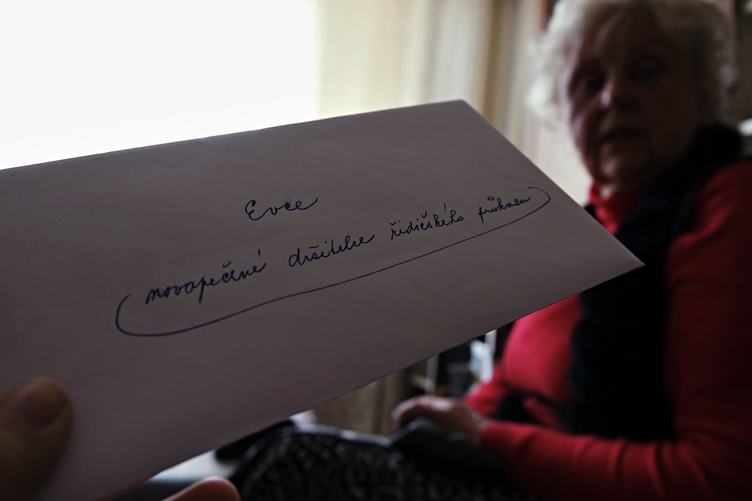 Evce
novopečené držitelce řidičského průkazu